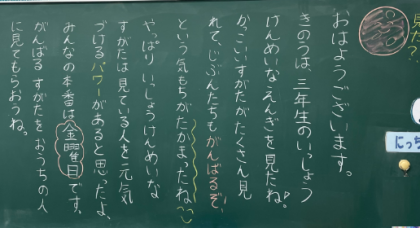 おはようございます。
きのうは、三年生のいっしょう
けんめいなえんぎを見たね。
かっこいいすがたがたくさん見
れて、じぶんたちもがんばるぞ、
という気もちがたかまったね
やっぱりいっしょうけんめいな
すがたは見ている人を元気
づけるパワーがあると思ったよ。
みんなの本番は金曜日です。
がんばるすがたをおうちの人
に見てもらおうね。
にっち